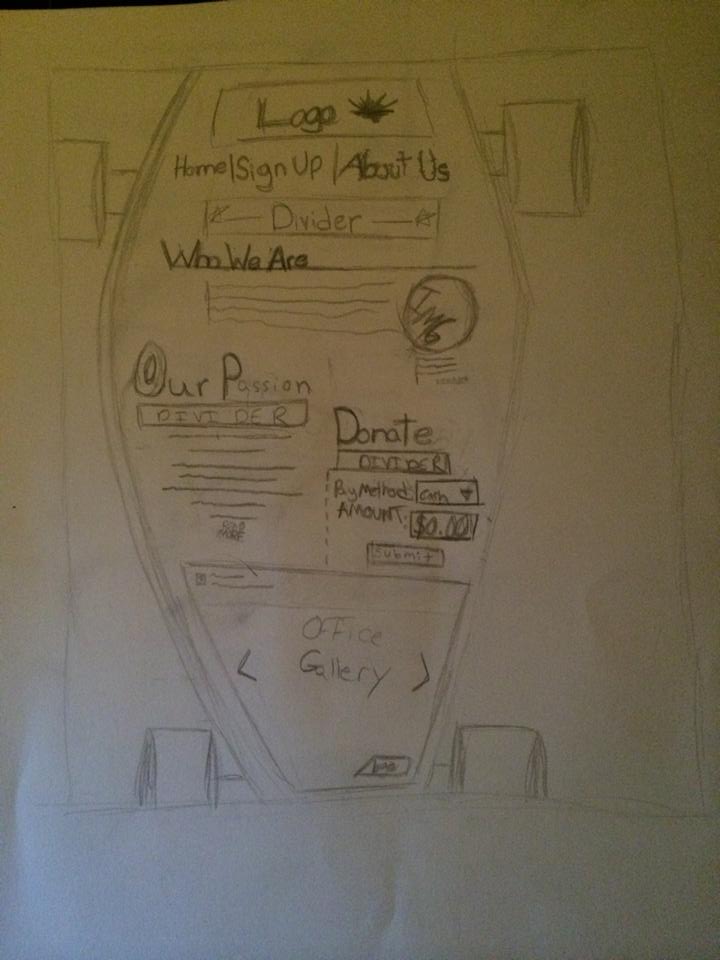 Logo
Home|Sign Up|About Us
Divider
Who We Are
IMG
Our Passion
DIVIDER
READ MORE
Donate
DIVIDER
By Method: Cash
AMOUNT: $0.00
Submit
Office
Gallery